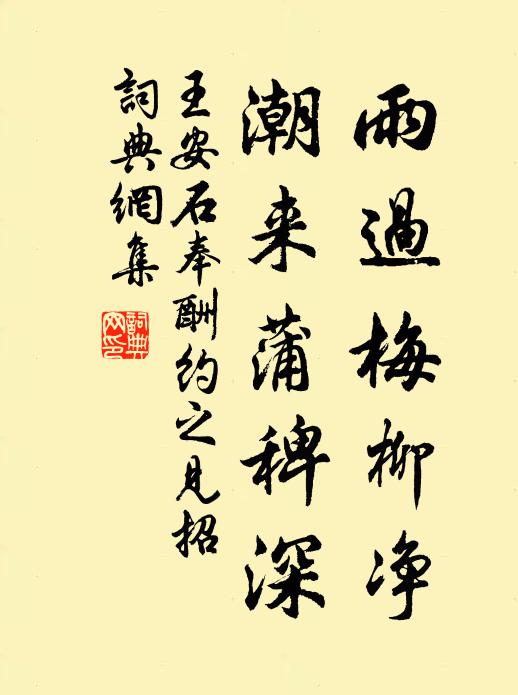 雨過梅柳净
潮来蒲稗深
王安石奉酬约之見招
詞典網集
詞典网印